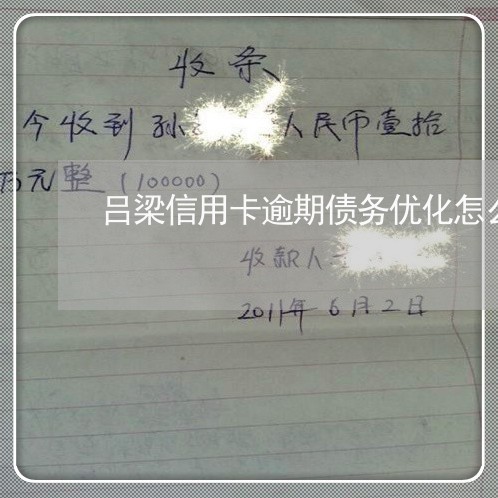 收条
今收到孙 人民币壹拾
万元整（100000）
吕梁信用卡逾期债务优化怎
收款人
2011年6月2日